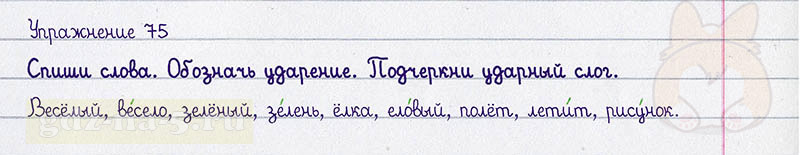 Упражнение 75
Спиши слова. Обозначь ударение. Подчеркни ударный слог.
Весёлый, ве́село, зелёный, зе́лень, ёлка, ело́вый, полёт, лети́т, рису́нок.
gdz-na-5.ru